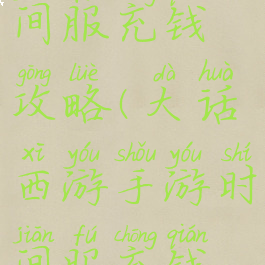 间服充钱
gōng lüè dà huà
攻略(大话
xī yóu shǒu yóu shí
西游手游时
jiān fú chōng qián
间服充钱